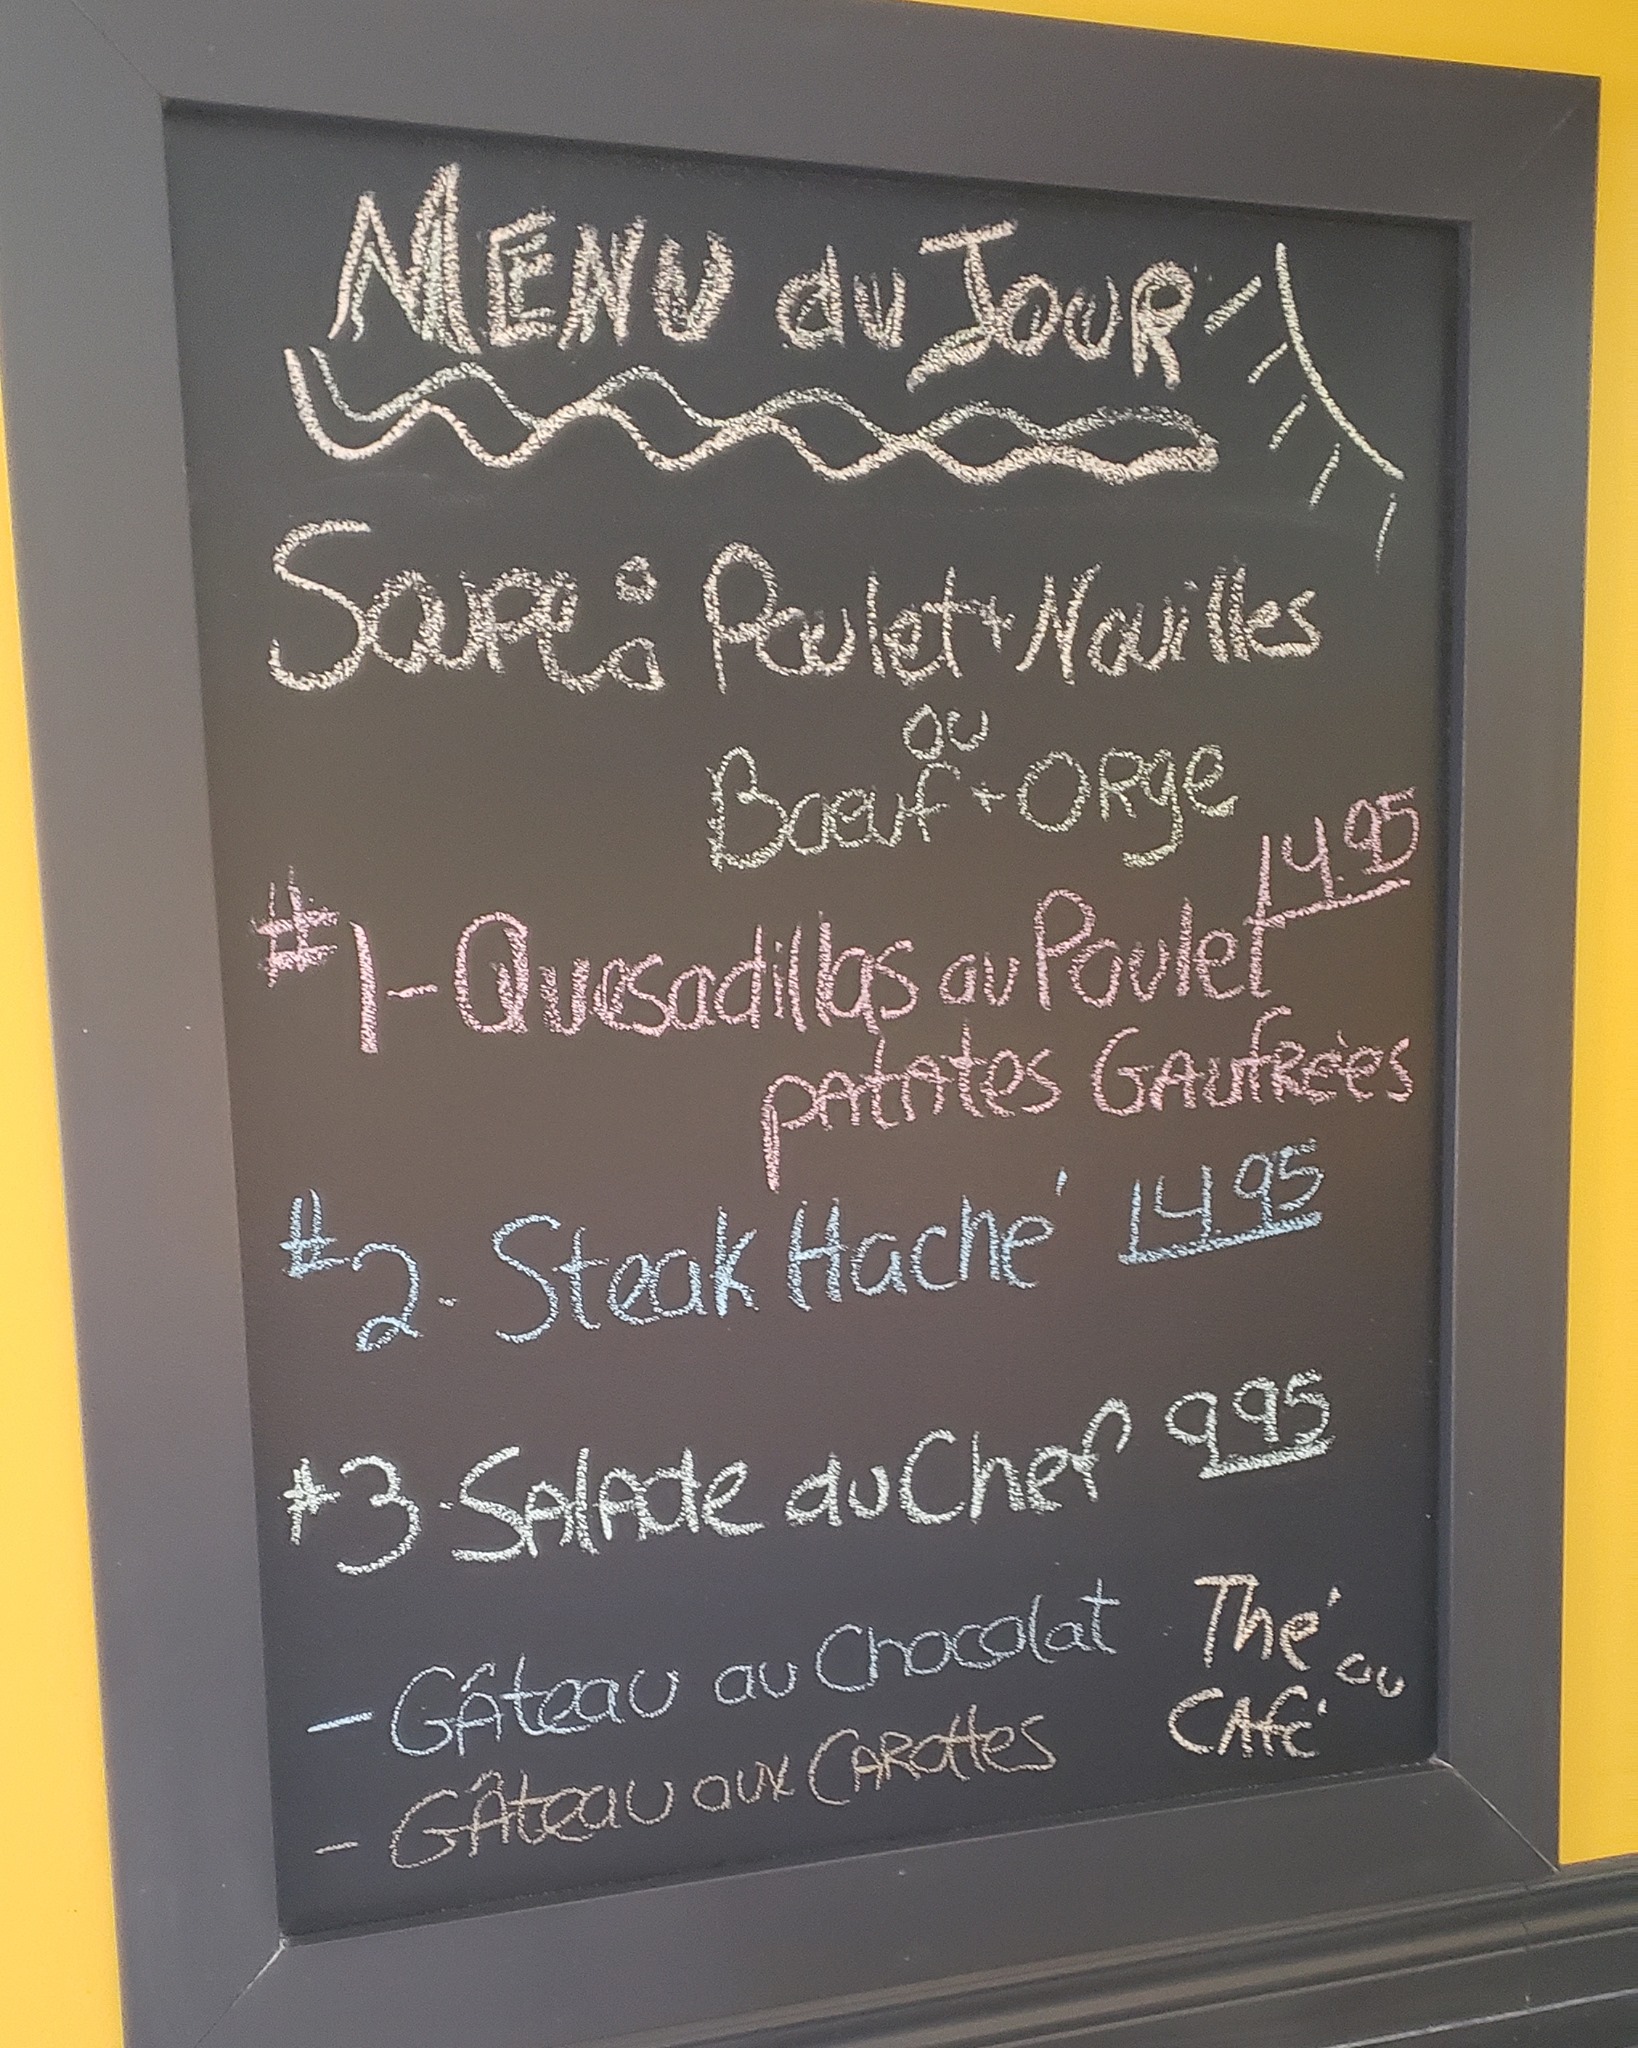 MENU du JOUR
Soupe: Poulet + Nouilles
ou
Boeuf + Orge
14.95
#1 - Quesadillas au Poulet
patates Gaufrées
#2. Steak Haché 14.95
#3. Salade du Chef 9.95
- Gâteau au Chocolat Thé ou
- Gâteau aux Carottes Café